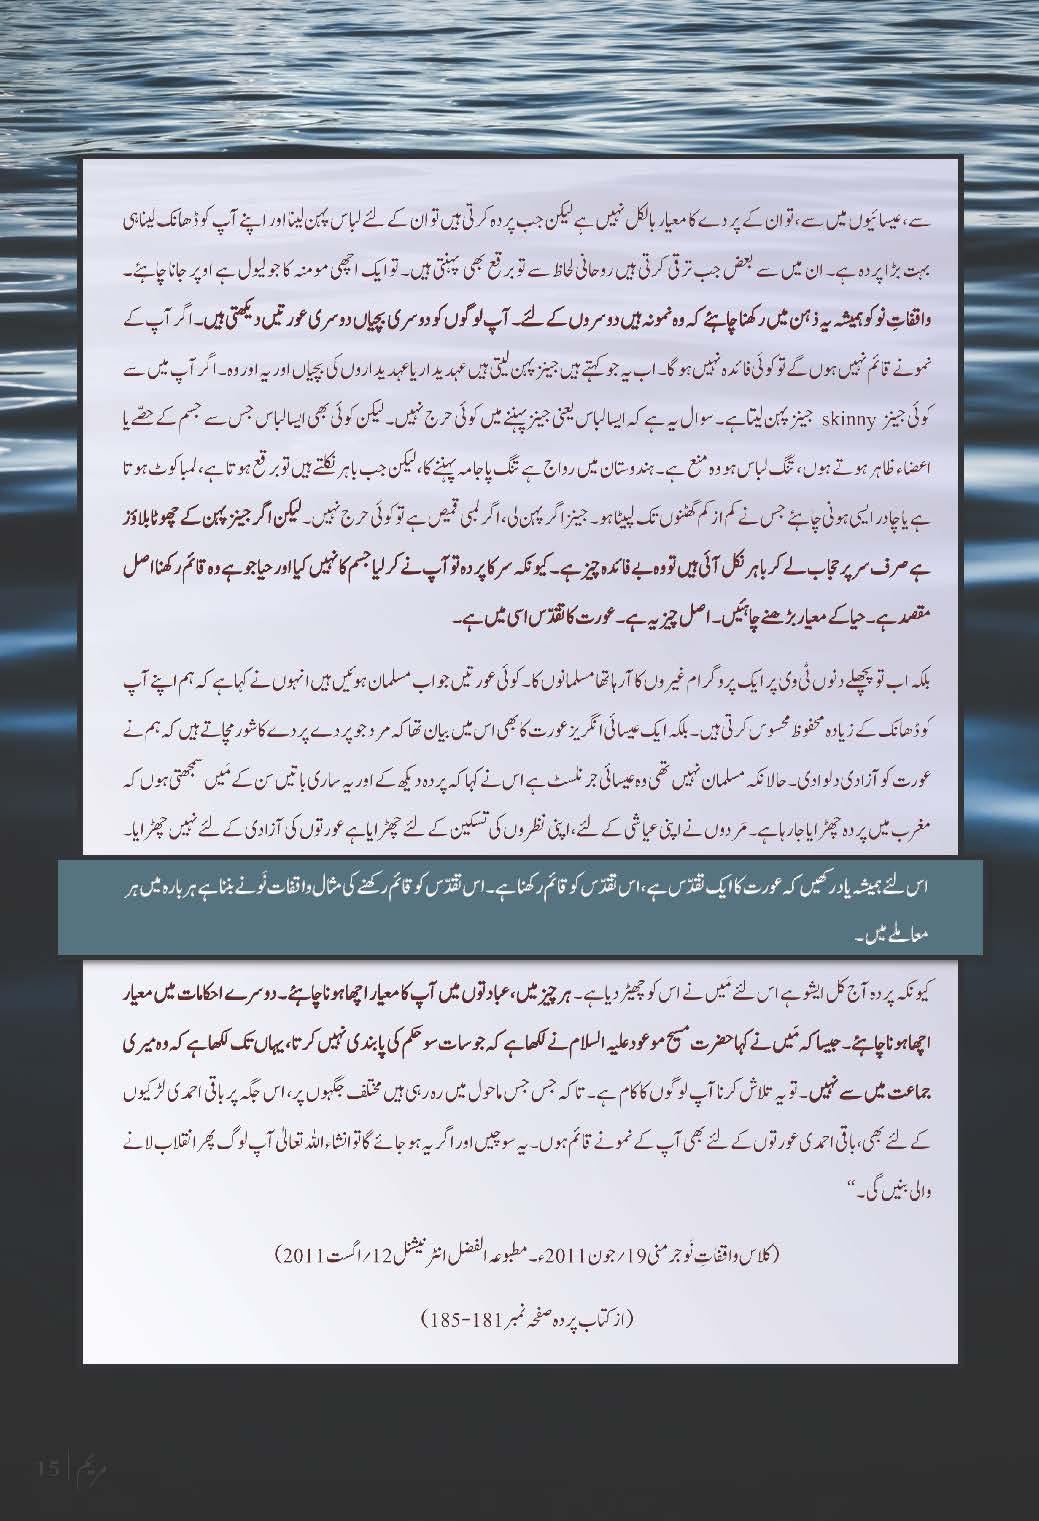 سے، عیسائیوں میں سے، تو ان کے پردے کا معیار بالکل نہیں ہے لیکن جب پردہ کرتی ہیں تو ان کے لئے لباس پہن لینا اور اپنے آپ کو ڈھانک لینا ہی
بہت بڑا پردہ ہے۔ ان میں سے بعض جب ترقی کرتی ہیں روحانی لحاظ سے تو برقع بھی پہنتی ہیں۔ تو ایک اچھی مومنہ کا جو لیول ہے اوپر جانا چاہئے۔
واقفاتِ نو کو ہمیشہ یہ ذہن میں رکھنا چاہئے کہ وہ نمونہ ہیں دوسروں کے لئے۔ آپ لوگوں کو دوسری بچیاں دوسری عورتیں دیکھتی ہیں۔ اگر آپ کے
نمونے قائم نہیں ہوں گے تو کوئی فائدہ نہیں ہو گا۔ اب یہ جو کہتے ہیں جینز پہن لیتی ہیں عہدیدار یا عہدیداروں کی بچیاں اور یہ اور وہ۔ اگر آپ میں سے
کوئی جینز skinny جینز پہن لیتا ہے۔ سوال یہ ہے کہ ایسا لباس یعنی جینز پہننے میں کوئی حرج نہیں۔ لیکن کوئی بھی ایسا لباس جس سے جسم کے حصّے یا
اعضاء ظاہر ہوتے ہوں، تنگ لباس ہو وہ منع ہے۔ ہندوستان میں رواج ہے تنگ پاجامہ پہننے کا، لیکن جب باہر نکلتے ہیں تو برقع ہوتا ہے، لمبا کوٹ ہوتا
ہے یا چادر ایسی ہونی چاہئے جس نے کم از کم گھٹنوں تک لپیٹا ہو۔ جینز اگر پہن لی، اگر لمبی قمیص ہے تو کوئی حرج نہیں۔ لیکن اگر جینز پہن کے چھوٹا بلاؤز
ہے صرف سر پر حجاب لے کر باہر نکل آئی ہیں تو وہ بے فائدہ چیز ہے۔ کیونکہ سر کا پردہ تو آپ نے کر لیا جسم کا نہیں کیا اور حیا جو ہے وہ قائم رکھنا اصل
مقصد ہے۔ حیا کے معیار بڑھنے چاہئیں۔ اصل چیز یہ ہے۔ عورت کا تقدّس اسی میں ہے۔
بلکہ اب تو پچھلے دنوں ٹی وی پر ایک پروگرام غیروں کا آ رہا تھا مسلمانوں کا۔ کوئی عورتیں جو اب مسلمان ہوئیں ہیں انہوں نے کہا ہے کہ ہم اپنے آپ
کو ڈھانک کے زیادہ محفوظ محسوس کرتی ہیں۔ بلکہ ایک عیسائی انگریز عورت کا بھی اس میں بیان تھا کہ مرد جو پردے پردے کا شور مچاتے ہیں کہ ہم نے
عورت کو آزادی دلوا دی۔ حالانکہ مسلمان نہیں تھی وہ عیسائی جرنلسٹ ہے اس نے کہا کہ پردہ دیکھ کے اور یہ ساری باتیں سن کے مَیں سمجھتی ہوں کہ
مغرب میں پردہ چھڑایا جا رہا ہے۔ مَردوں نے اپنی عیاشی کے لئے، اپنی نظروں کی تسکین کے لئے چھڑایا ہے عورتوں کی آزادی کے لئے نہیں چھڑایا۔
اس لئے ہمیشہ یاد رکھیں کہ عورت کا ایک تقدّس ہے، اس تقدّس کو قائم رکھنا ہے۔ اس تقدّس کو قائم رکھنے کی مثال واقفات نَو نے بننا ہے ہر بارہ میں ہر
معاملے میں۔
کیونکہ پردہ آج کل ایشو ہے اس لئے مَیں نے اس کو چھیڑ دیا ہے۔ ہر چیز میں، عبادتوں میں آپ کا معیار اچھا ہونا چاہئے۔ دوسرے احکامات میں معیار
اچھا ہونا چاہئے۔ جیسا کہ مَیں نے کہا حضرت مسیح موعود علیہ السلام نے لکھا ہے کہ جو سات سو حکم کی پابندی نہیں کرتا، یہاں تک لکھا ہے کہ وہ میری
جماعت میں سے نہیں۔ تو یہ تلاش کرنا آپ لوگوں کا کام ہے۔ تاکہ جس جس ماحول میں رہ رہی ہیں مختلف جگہوں پر، اس جگہ پر باقی احمدی لڑکیوں
کے لئے بھی، باقی احمدی عورتوں کے لئے بھی آپ کے نمونے قائم ہوں۔ یہ سوچیں اور اگر یہ ہو جائے گا تو انشاء اللہ تعالیٰ آپ لوگ پھر انقلاب لانے
والی بنیں گی۔“
(کلاس واقفاتِ نَو جرمنی 19/جون 2011ء۔ مطبوعہ الفضل انٹرنیشنل 12/اگست 2011)
(از کتاب پردہ صفحہ نمبر 181-185)
مریم | 15